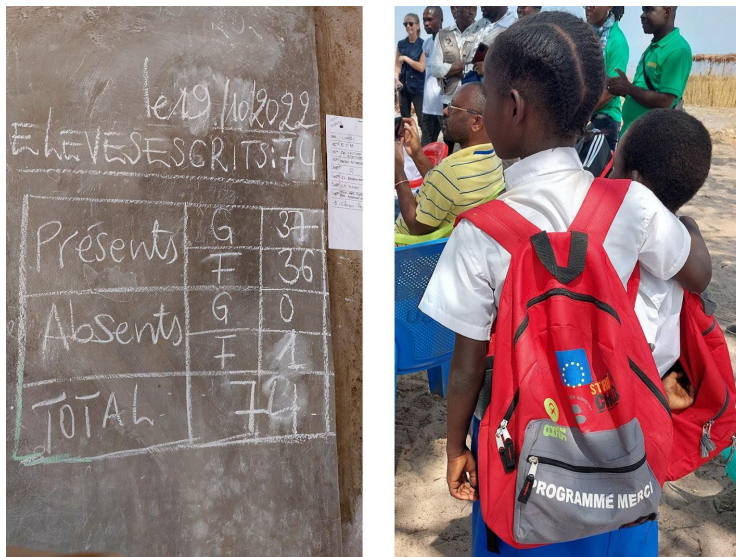 le 19/10/2022
ELEVESESCRITS:74
Présents G 37
F 36
Absents G 0
F 1
TOTAL 74
PROGRAMME MERCI